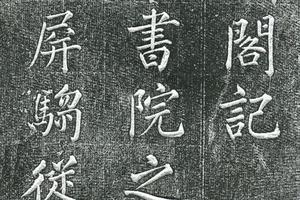 閣記
書院之
屏騶從